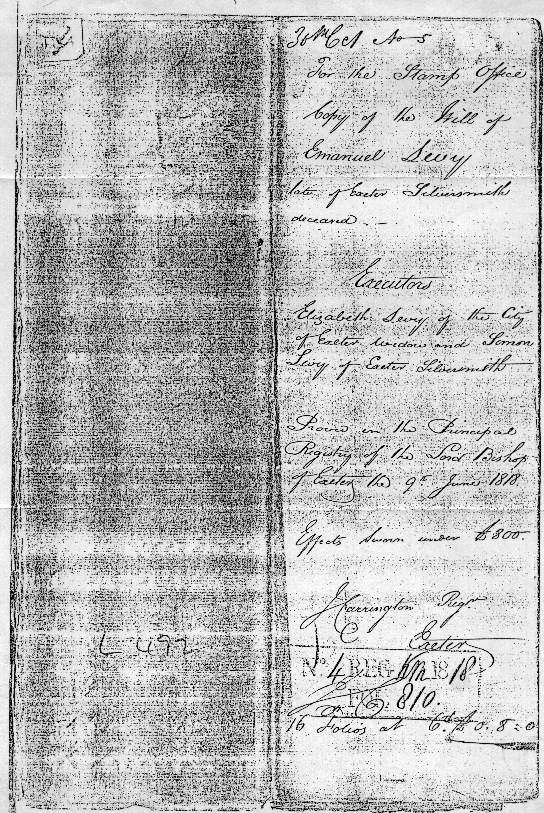 30th Oct No 5
For the Stamp Office
Copy of the Will of
Emanuel Levy
late of Exeter Silversmith
deceased
Executors
Elizabeth Levy of the City
of Exeter widow and Simon
Levy of Exeter Silversmith
Proved in the Principal
Registry of the Lord Bishop
of Exeter the 9th June 1818
Effects sworn under £800.
Carrington Regr
Exeter
L 492
No 4 REG 1818
810.
16 Folios at 6d £0.8=0